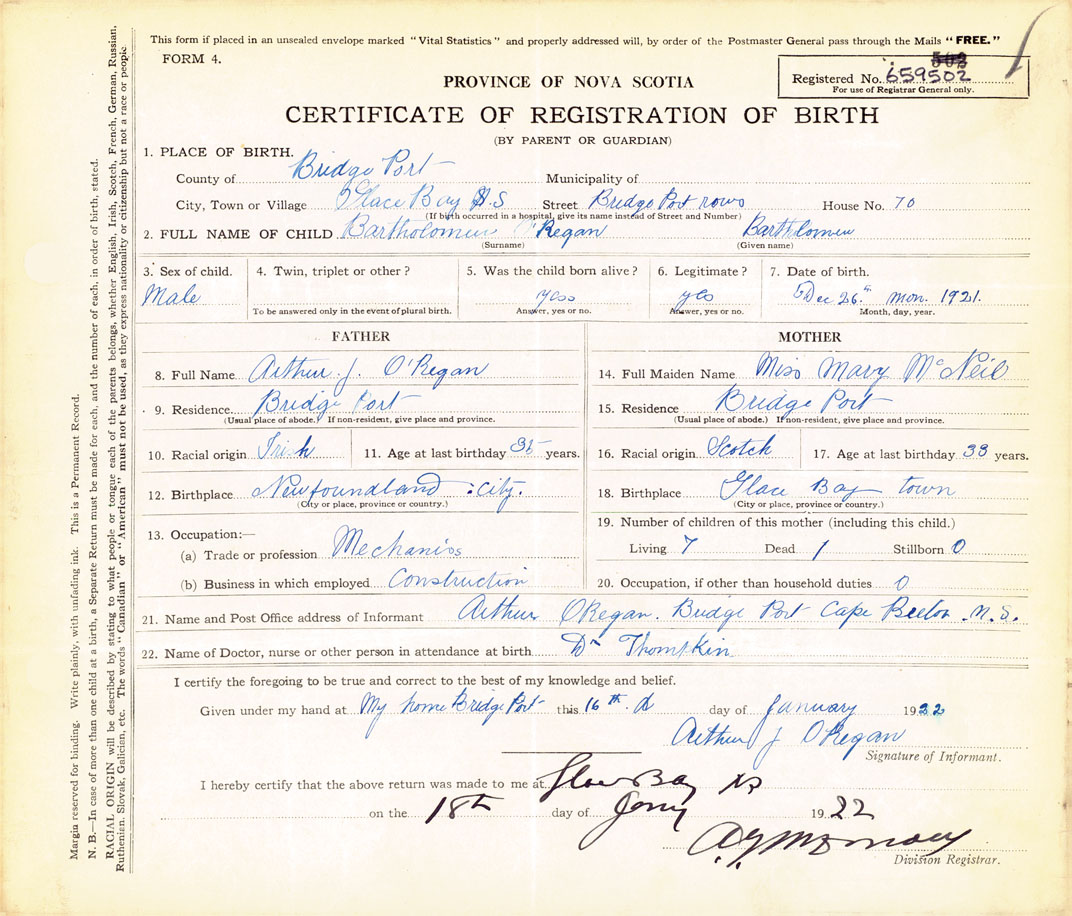 This form if placed in an unsealed envelope marked "Vital Statistics" and properly addressed will, by order of the Postmaster General pass through the Mails "FREE."
FORM 4.
PROVINCE OF NOVA SCOTIA
Registered No. 659502
For use of Registrar General only.
CERTIFICATE OF REGISTRATION OF BIRTH
(BY PARENT OR GUARDIAN)
1. PLACE OF BIRTH.
County of Bridge Port Municipality of
City, Town or Village Glace Bay N.S Street Bridge Port rows House No. 70
(If birth occurred in a hospital, give its name instead of Street and Number)
2. FULL NAME OF CHILD Bartholomew O'Regan Bartholomew
(Surname) (Given name)
3. Sex of child. 4. Twin, triplet or other? 5. Was the child born alive? 6. Legitimate? 7. Date of birth.
Male yess yes Dec 26th mon. 1921.
To be answered only in the event of plural birth. Answer, yes or no. Answer, yes or no. Month, day, year.
FATHER
8. Full Name Arthur J. O'Regan
9. Residence Bridge Port
(Usual place of abode.) If non-resident, give place and province.
10. Racial origin Irish 11. Age at last birthday 35 years.
12. Birthplace Newfoundland :city.
(City or place, province or country.)
13. Occupation:—
(a) Trade or profession Mechanics
(b) Business in which employed Construction
MOTHER
14. Full Maiden Name Miss Mary McNeil
15. Residence Bridge Port
(Usual place of abode.) If non-resident, give place and province.
16. Racial origin Scotch 17. Age at last birthday 33 years.
18. Birthplace Glace Bay town
(City or place, province or country.)
19. Number of children of this mother (including this child.)
Living 7 Dead 1 Stillborn 0
20. Occupation, if other than household duties 0
21. Name and Post Office address of Informant Arthur ORegan. Bridge Port Cape Breton N.S.
22. Name of Doctor, nurse or other person in attendance at birth Dr Thomtkin
I certify the foregoing to be true and correct to the best of my knowledge and belief.
Given under my hand at My home Bridge Port this 16th. day of January 1922
Arthur J ORegan
Signature of Informant.
I hereby certify that the above return was made to me at Glace Bay NS
on the 18th day of Jany 1922
Division Registrar.
Margin reserved for binding. Write plainly, with unfading ink. This is a Permanent Record.
N. B.—In case of more than one child at a birth, a Separate Return must be made for each, and the number of each, in order of birth, stated.
RACIAL ORIGIN will be described by stating to what people or tongue each of the parents belongs, whether English, Irish, Scotch, French, German, Russian,
Ruthenian, Slovak, Galician, etc. The words "Canadian" or "American" must not be used, as they express nationality or citizenship but not a race or people